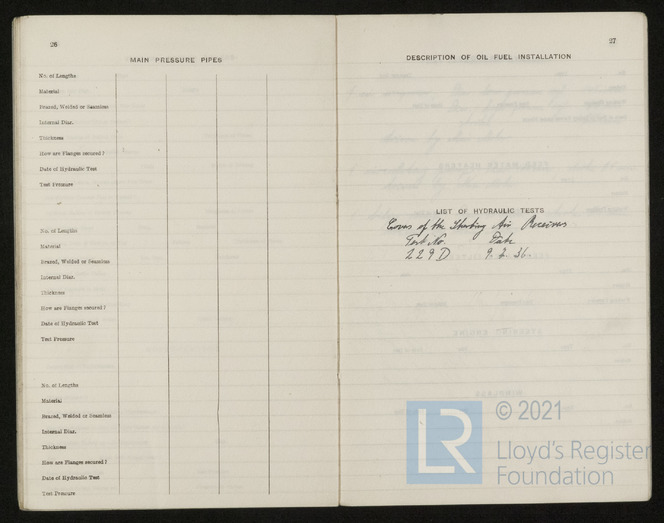 26
MAIN PRESSURE PIPES
No. of Lengths
Material
Brazed, Welded or Seamless
Internal Dia.
Thickness
How are Flanges secured?
Date of Hydraulic Test
Test Pressure
No. of Lengths
Material
Brazed, Welded or Seamless
Internal Dia.
Thickness
How are Flanges secured?
Date of Hydraulic Test
Test Pressure
No. of Lengths
Material
Brazed, Welded or Seamless
Internal Dia.
Thickness
How are Flanges secured?
Date of Hydraulic Test
Test Pressure
27
DESCRIPTION OF OIL FUEL INSTALLATION
LIST OF HYDRAULIC TESTS
Covers of the Starting Air Receivers
Test No. Date
229 D 9. 36
LR
© 2021
Lloyd's Register
Foundation